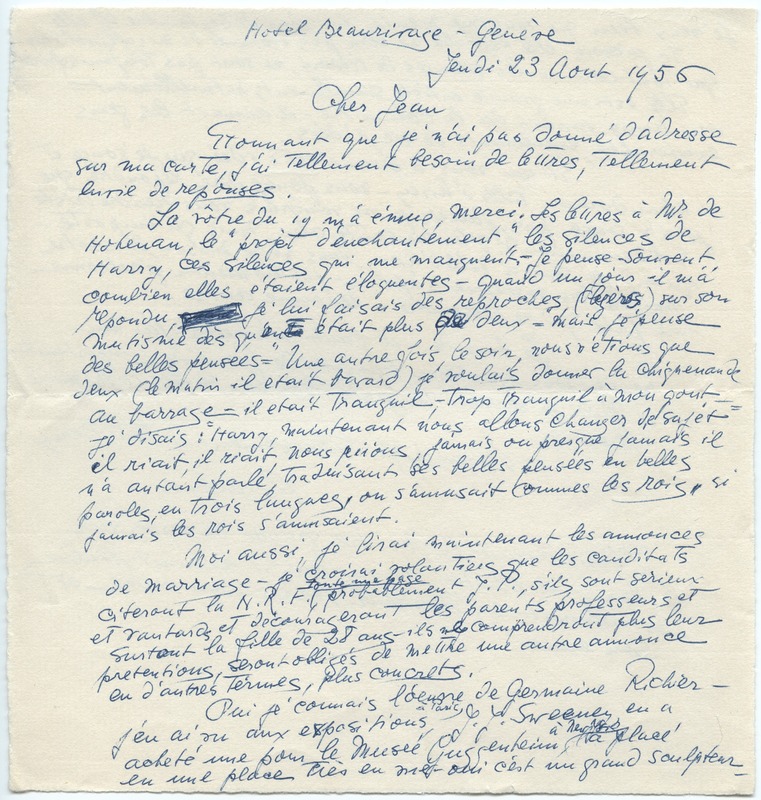 Hotel Beaurivage - Genève
Jeudi 23 Aout 1956
Cher Jean
Etonnant que je n'ai pas donné d'adresse
sur ma carte, j'ai tellement besoin de lettres, tellement
envie de reponses.
La vôtre du 19 m'a émue, merci. Les lettres à Mr. de
Hohenau, le "projet d'enchantement" les silences de
Harry, ces silences qui me manquent, - je pense souvent
combien elles étaient éloquentes - quand un jour il m'a
repondu je lui faisais des reproches (légères) sur son
mutisme dès qu'on était plus que deux = mais je pense
des belles pensées = " Une autre fois, le soir, nous n'étions que
deux (le matin il etait bavard) je voulais donner la chiquenaude
au barrage - il etait tranquil - trop tranquil à mon gout -
je disais: "Harry, maintenant nous allons changer de sujet =
il riait, il riait nous riions, jamais ou presque jamais il
n'a autant parlé, traduisant ses belles pensées en belles
paroles, en trois langues, on s'amusait commes les rois, si
jamais les rois s'amusaient.
Moi aussi, je lirai maintenant les annonces
de marriage - je croirai volontiers que les canditats
citeront la N.R.F., toute une page probablement J.P., s'ils sont serieux
et vantards et decourageront les parents, professeurs et
surtout la fille de 28 ans - ils ne comprendront plus leur
pretentions, seront obligés de mettre une autre annonce
en d'autres termes, plus concrets.
Oui je connais l'oeuvre de Germaine Richier -
j'en ai vu aux expositions à Paris, J. J. Sweeney en a
acheté une pour le Musée Guggenheim à New York la placé
en une place très en vue - oui c'est un grand sculpteur -